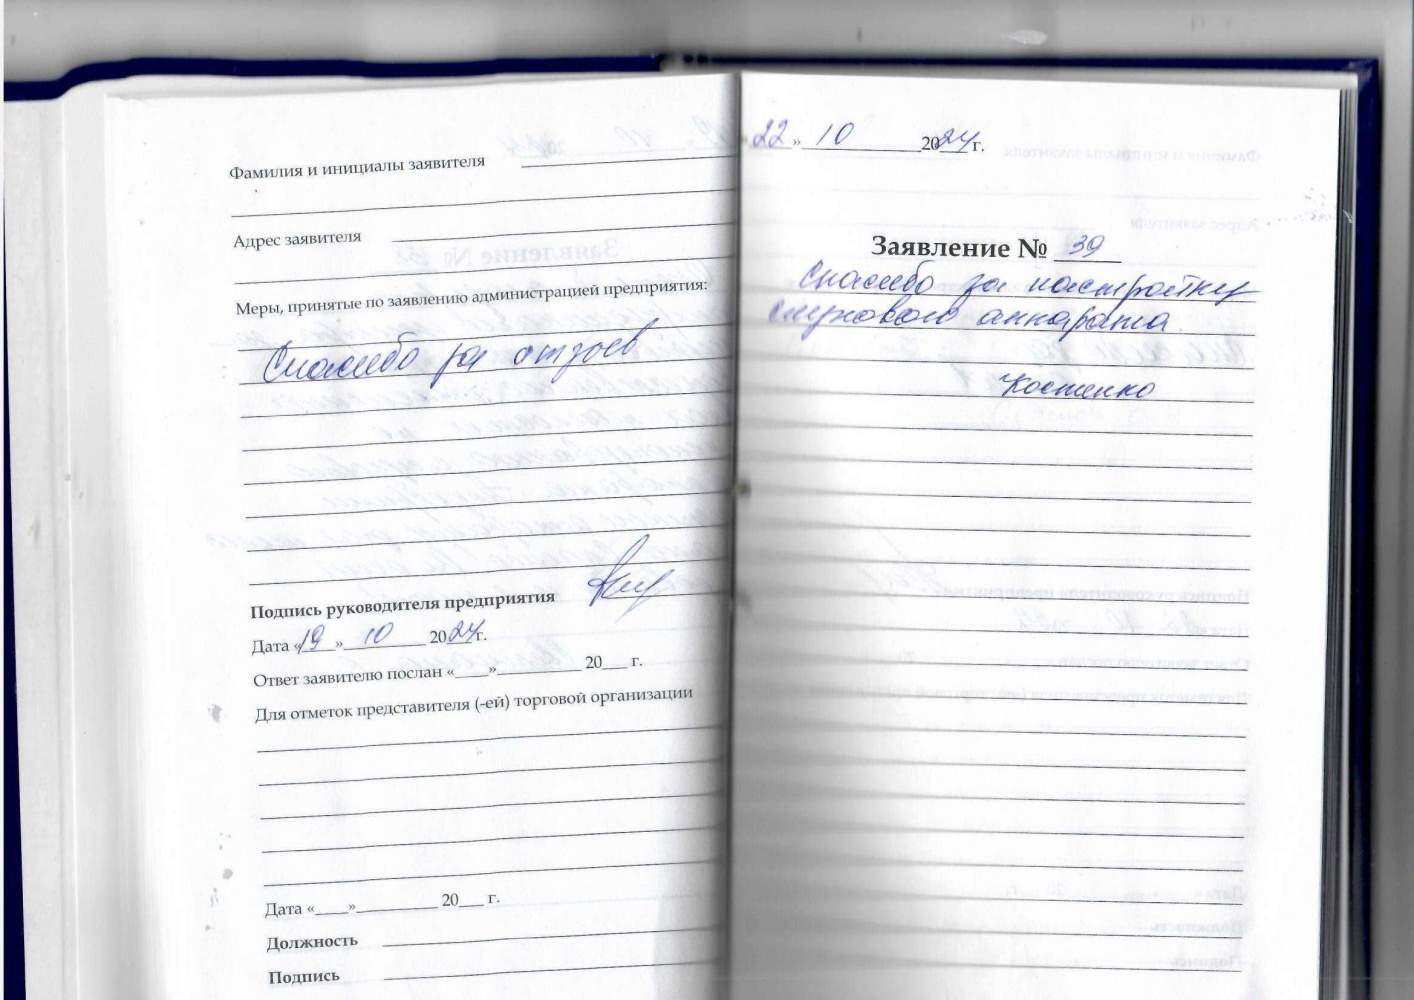 Фамилия и инициалы заявителя
Адрес заявителя
Меры, принятые по заявлению администрацией предприятия:
Спасибо за отзыв
Подпись руководителя предприятия
Дата «19» 10 2024 г.
Ответ заявителю послан «____»__________ 20___ г.
Для отметок представителя (-ей) торговой организации
Дата «____»__________ 20___ г.
Должность
Подпись
22» 10 2024 г.
Заявление № 39
Спасибо за настройку
слухового аппарата
Костенко